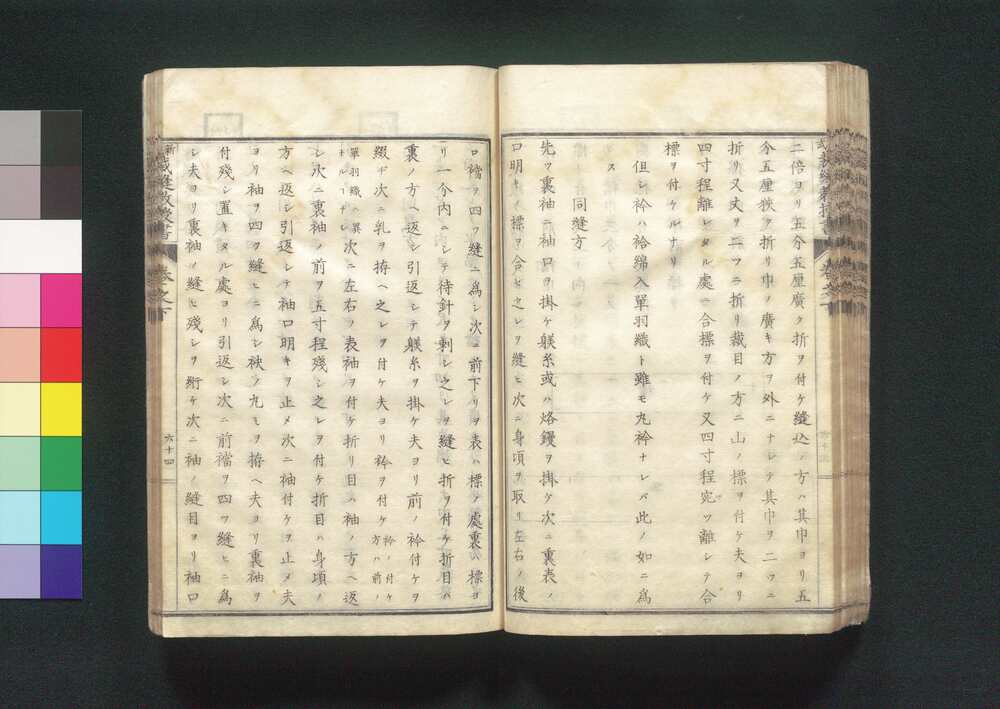 二倍ヨリ五分五厘廣ク折ヲ付ケ縫込ノ方ハ其巾ヨリ五
分五厘狹ク折リ巾ノ廣キ方ヲ外ニナシテ其巾ヲ二ツニ
折リ又丈ヲ二ツニ折リ裁目ノ方ニ山ノ標ヲ付ケ夫ヨリ
四寸程離レタル處ニ合標ヲ付ケ又四寸程宛ツ離シテ合
標ヲ付ケルナリ
但シ衿ハ袷綿入單羽織ト雖モ丸衿ナレバ此ノ如ニ爲
ス
同縫方
先ツ裏袖ニ袖口ヲ掛ケ躾糸或ハ烙鏝ヲ掛ケ次ニ裏表ノ
口明キノ標ヲ合セ之レヲ縫ヒ次ニ身項ヲ取リ左右ノ後
ロ襠ヲ四ツ縫ニ爲シ次ニ前下リヲ表ハ標ノ處裏ハ標ヨ
リ一分内ニシテ待針ヲ刺シ之レヲ縫ヒ折ヲ付ケ折目ハ
裏ノ方ヘ返シ引返シテ躾糸ヲ掛ケ夫ヨリ前ノ衿付ケヲ
綴ヂ次ニ乳ヲ拵ヘ之レヲ付ケ夫ヨリ衿ヲ付ケ衿ノ付ケ方ハ前ノ
單羽織ト異ナルコトナシ次ニ左右ノ表袖ヲ付ケ折リ目ハ袖ノ方ヘ返
シ次ニ裏袖ノ前ヲ五寸程殘シ之レヲ付ケ折目ハ身項ノ
方ヘ返シ引返シテ袖口明キヲ止メ次ニ袖付ケヲ止メ夫
ヨリ袖ヲ四ツ縫ヒニ爲シ袂ノ丸ミヲ拵ヘ夫ヨリ裏袖ヲ
付殘シ置キタル處ヨリ引返シ次ニ前襠ヲ四ツ縫ヒニ爲
シ夫ヨリ裏袖ノ縫ヒ殘シヲ絎ケ次ニ袖ノ縫目ヨリ袖口
裁縫教授書 卷之下
六十四